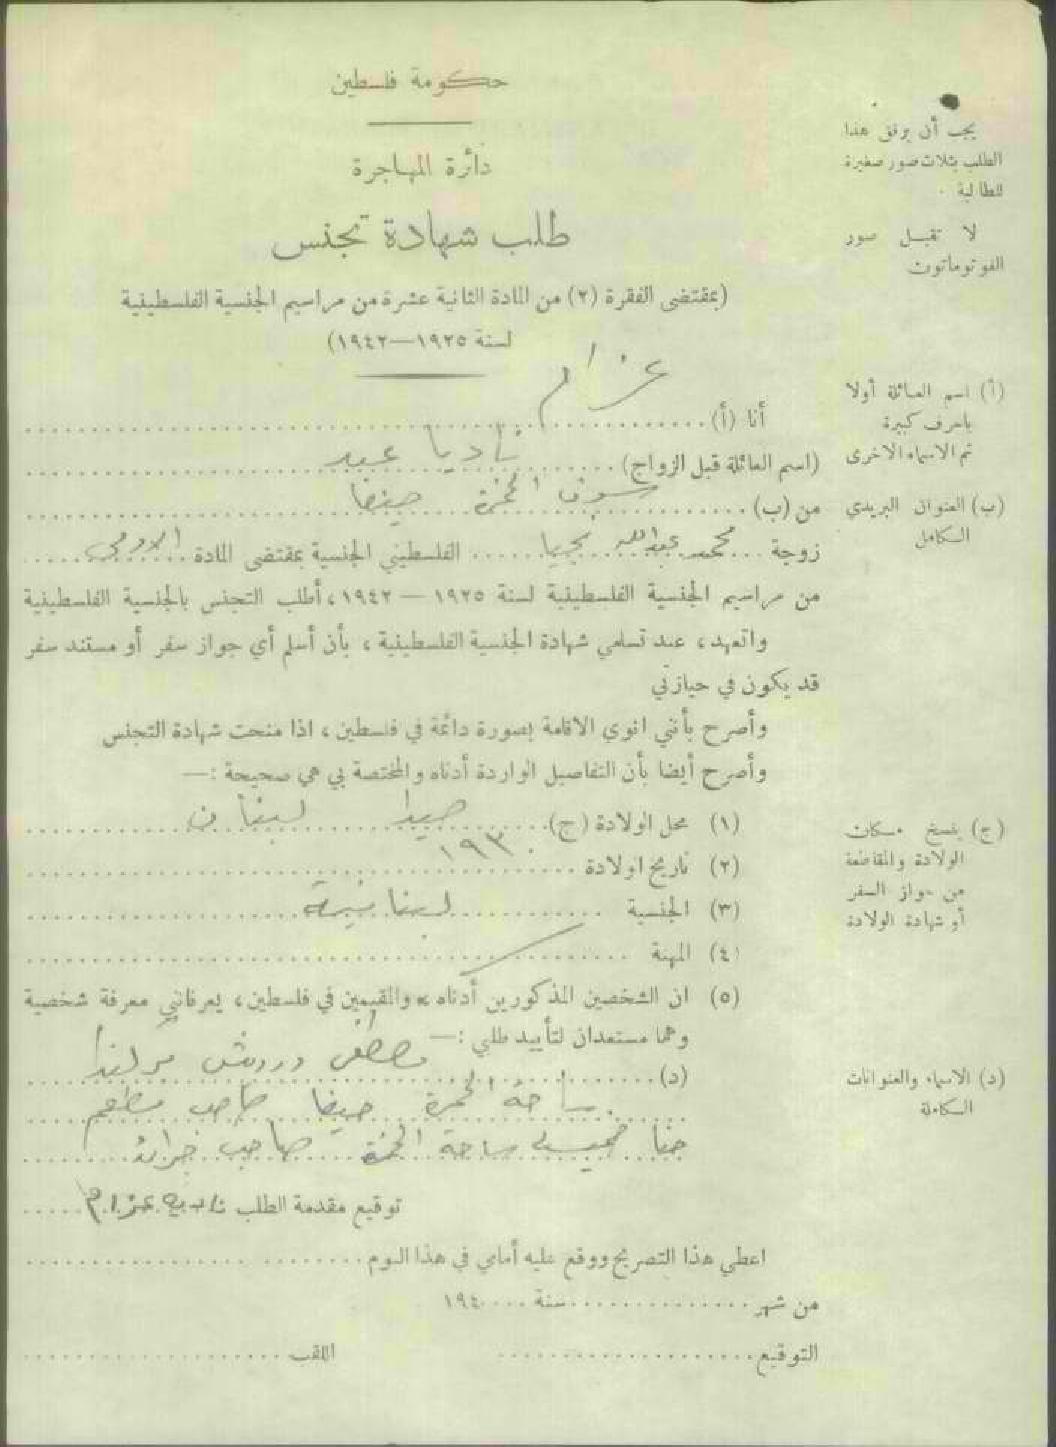 حكومة فلسطين
دائرة المهاجرة
طلب شهادة تجنس
(بمقتضى الفقرة (٢) من المادة الثانية عشرة من مراسيم الجنسية الفلسطينية
لسنة ١٩٢٥—١٩٤٢)
يجب أن يرفق هذا
الطلب بثلاث صور صغيرة
للطالبة .
لا تقبل صور
الفوتوماتون
(أ) اسم العائلة أولا
باحرف كبيرة
ثم الاسماء الاخرى
أنا (أ) عزام
(اسم العائلة قبل الزواج) ناديا عبد
(ب) العنوان البريدي
الكامل
من (ب) سوق الخمرة حيفا
زوجة محمد عبدالله يحيا الفلسطيني الجنسية بمقتضى المادة
من مراسيم الجنسية الفلسطينية لسنة ١٩٢٥ — ١٩٤٢، أطلب التجنس بالجنسية الفلسطينية
واتعهد، عند تسلمي شهادة الجنسية الفلسطينية ، بأن أسلم أي جواز سفر أو مستند سفر
قد يكون في حيازتي
وأصرح بأنني انوي الاقامة بصورة دائمة في فلسطين ، اذا منحت شهادة التجنس
وأصرح أيضا بأن التفاصيل الواردة أدناه والمختصة بي هي صحيحة :—
(١) محل الولادة (ج) صيدا لبنان
(٢) تاريخ اولادة ١٩٣٠
(٣) الجنسية لبنانية
(٤) المهنة
(ج) ينسخ مكان
الولادة والمقاطعة
من جواز السفر
أو شهادة الولادة
(٥) ان الشخصين المذكورين أدناه، والمقيمين في فلسطين، يعرفانني معرفة شخصية
وهما مستعدان لتأييد طلبي :—
(د) الاسماء والعنوانات
الكاملة
(د) مصطفى درويش
ساحة الخمرة حيفا صاحب مطعم
حنا ساحة الخمرة صاحب
توقيع مقدمة الطلب ناديه عزام
اعطي هذا التصريح ووقع عليه أمامي في هذا اليوم
من شهر سنة ١٩٤
التوقيع اللقب